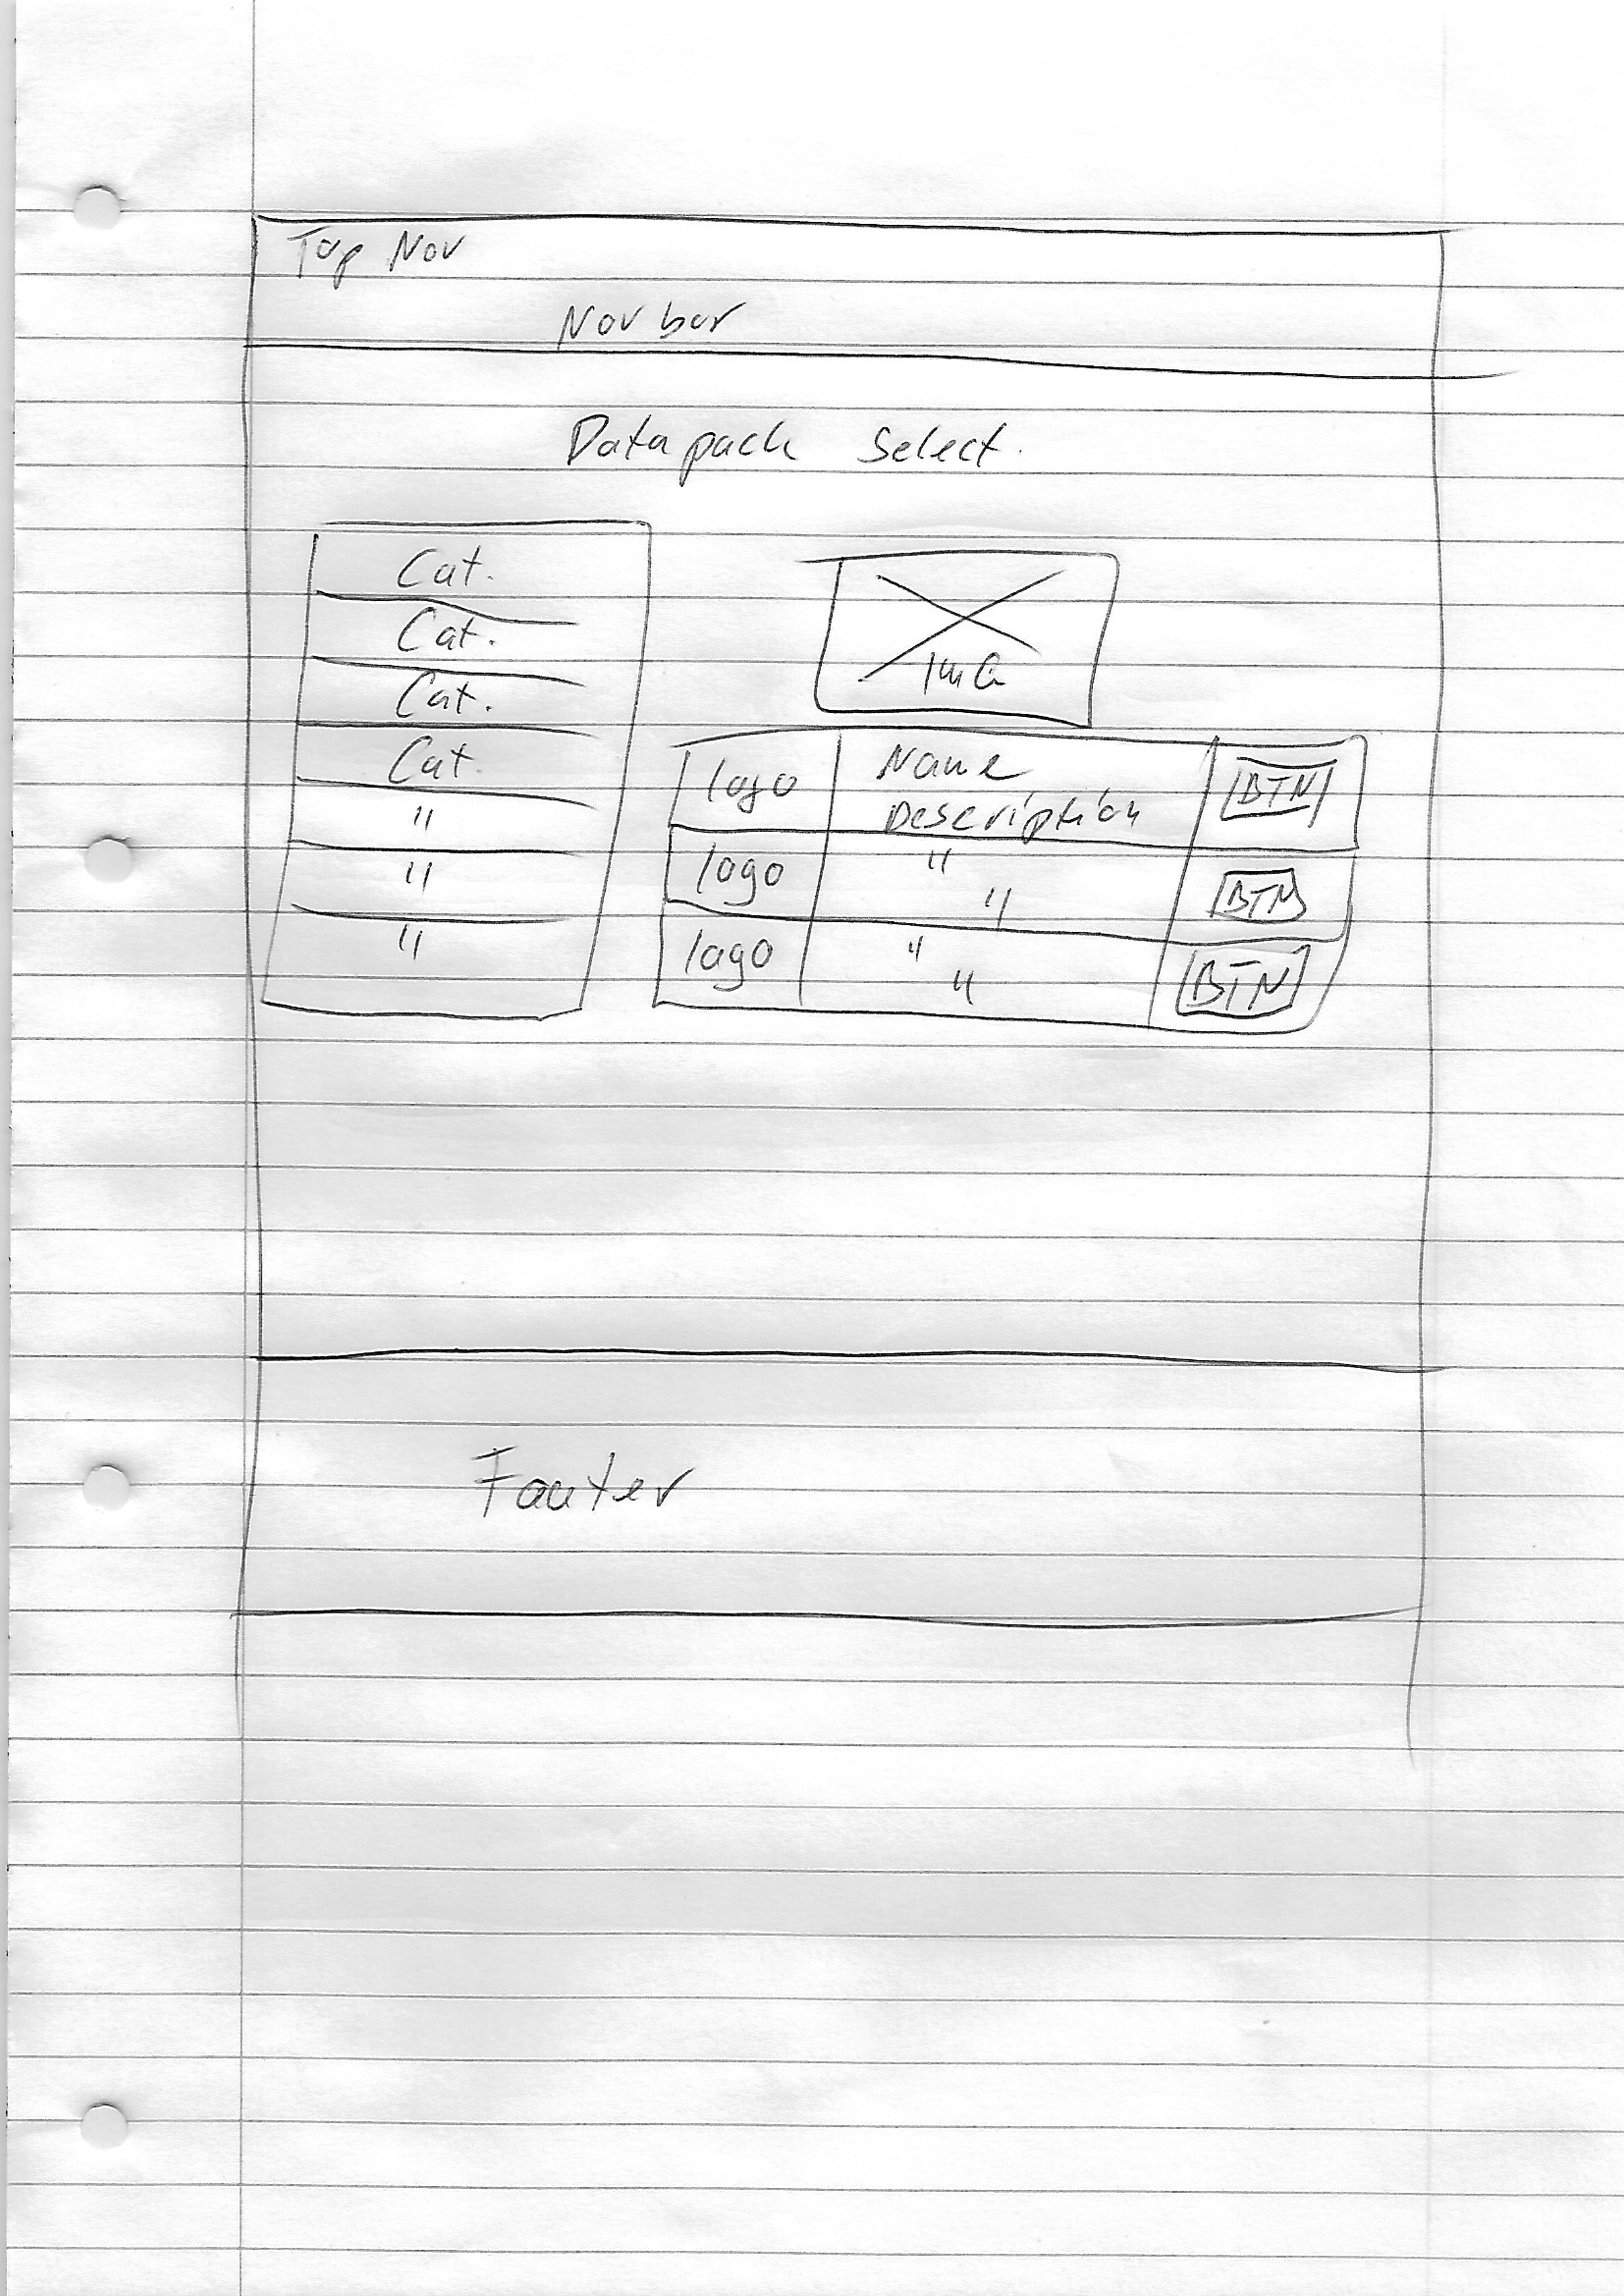 Top Nav
Navbar
Datapack Select.
Cat.
Cat.
Cat.
Cat.
"
"
"
ImG
logo Name BTN
Description
logo " BTN
"
logo " BTN
"
Footer